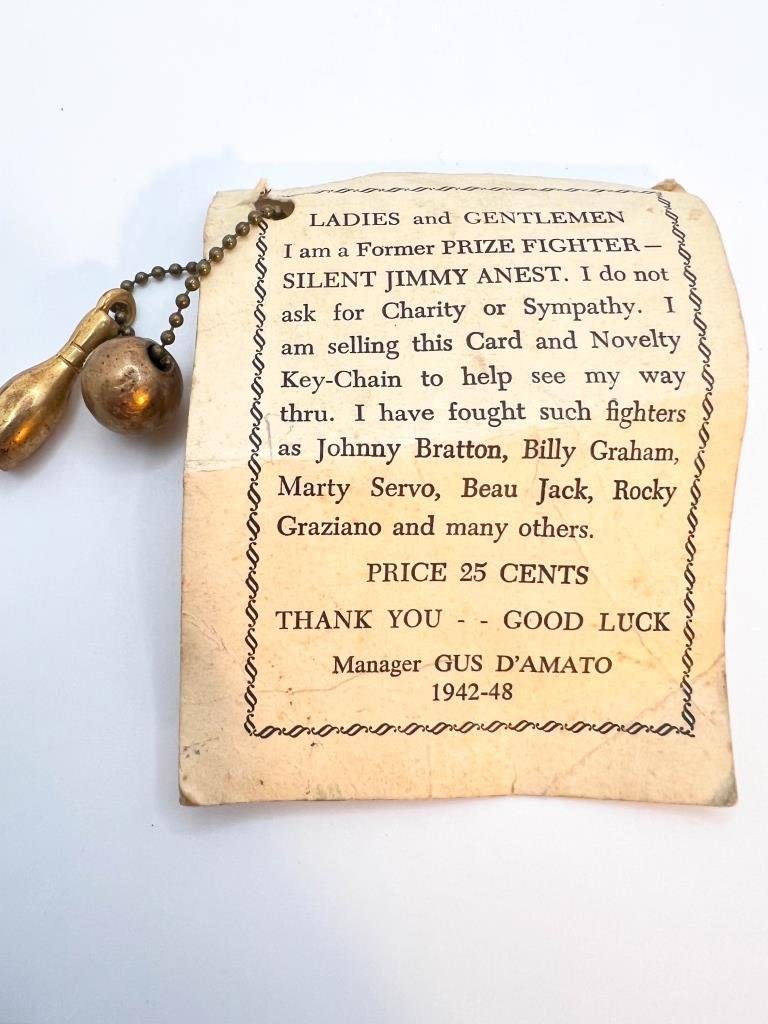 LADIES and GENTLEMEN
I am a Former PRIZE FIGHTER—
SILENT JIMMY ANEST. I do not
ask for Charity or Sympathy. I
am selling this Card and Novelty
Key-Chain to help see my way
thru. I have fought such fighters
as Johnny Bratton, Billy Graham,
Marty Servo, Beau Jack, Rocky
Graziano and many others.
PRICE 25 CENTS
THANK YOU - - GOOD LUCK
Manager GUS D'AMATO
1942-48